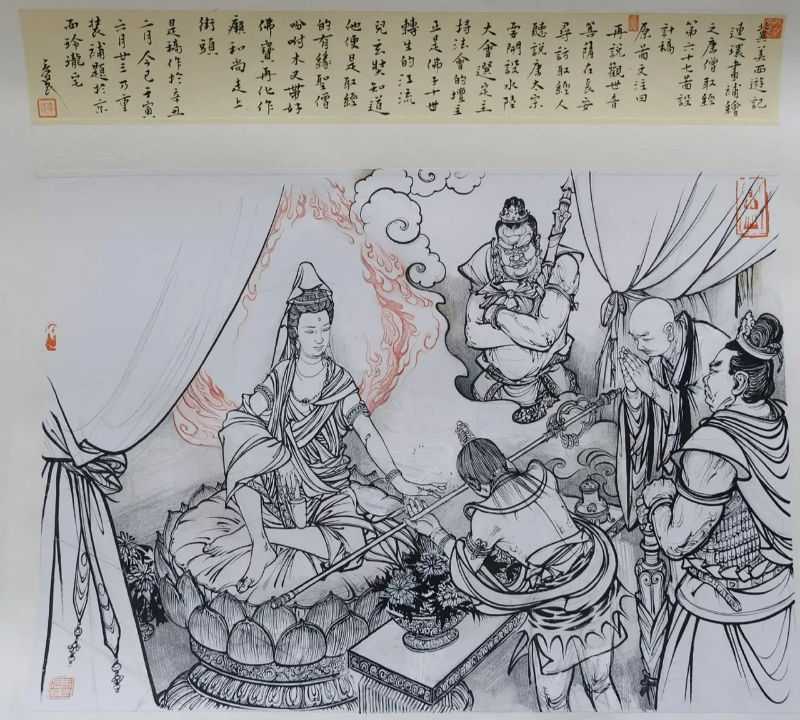 冀美西遊記
連環畫補繪
之唐僧取經
第六十七啚設
計稿
原啚文注曰
再說觀世音
菩薩在長安
尋訪取經人
聽說唐太宗
要開設水陸
大會選定主
持法會的壇主
正是佛子十世
轉生的江流
兒玄奘知道
他便是取經
的有緣聖僧
吩咐木叉帶好
佛寶再化作
癩和尚走上
街頭
是稿作於辛丑
二月今已壬寅
六月廿三乃重
裝補題於京
西玲瓏宅